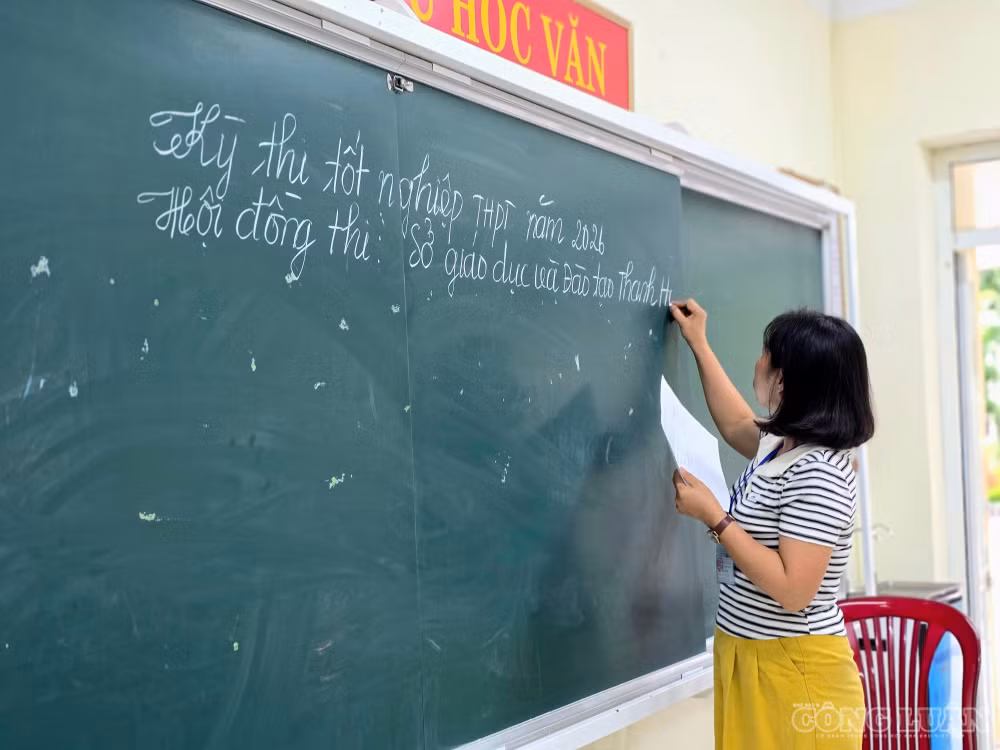 HỌC VĂN
Kỳ thi tốt nghiệp THPT năm 2026
Hội đồng thi: Sở giáo dục và Đào tạo Thanh H
CÔNG LUẬN